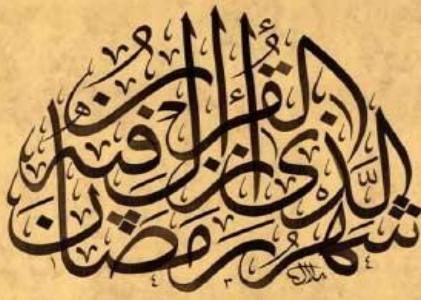 شَهْرُ رَمَضَانَ الَّذِي أُنْزِلَ فِيهِ الْقُرْآنُ
١٤٣٤